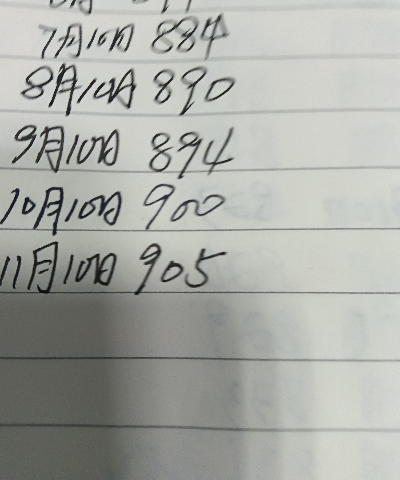 7月10日 884
8月10日 890
9月10日 894
10月10日 900
11月10日 905